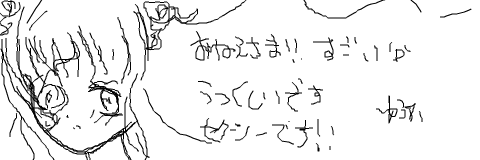 おねえさま!! すごいか
うつくしいです
セクシーです!!